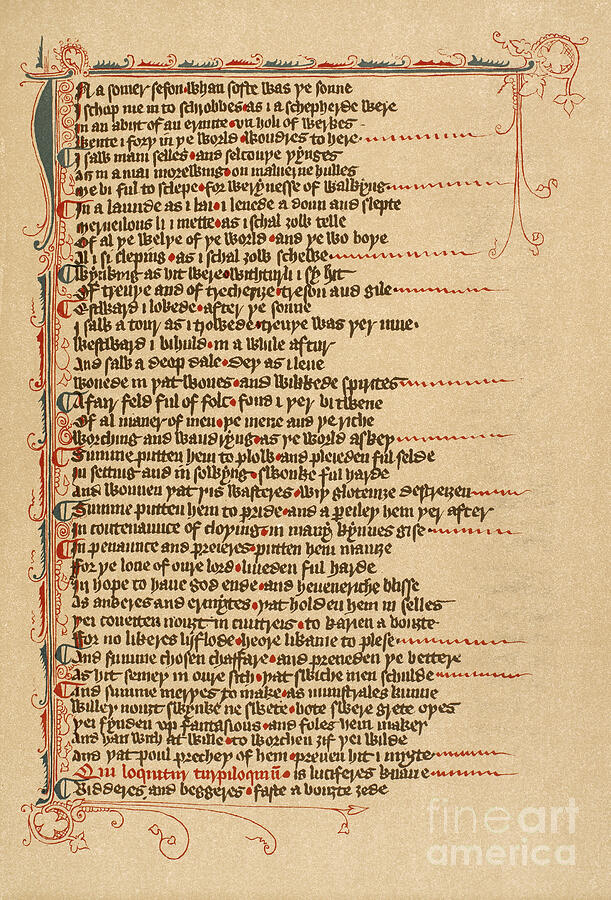 In a somer seson whan softe was þe sonne
I schop me in to schrobbes as i a schepherde were
In an abyt of an ermite vn holi of werkes
Wente i forþ in þe world wondres to here
I saw mani selles and selcouþe þynges
As in a mai morewnyng on maluerne hulles
Me bi ful to slepe for werynesse of walkyng
In a launde as i lai i lenede a doun and slepte
Merueilous li i mette as i schal ȝow telle
Of al þe welþe of þe world and þe wo boþe
Al i si sleping as i schal ȝow schewe
Wynkyng as hit were witturli i sy hit
Of treuþe and of trecherize treson and gile
Estward i lokede after þe sonne
I saw a tour as i trowede treuþe was þer inne
Westward i bihuld in a while aftur
And saw a deop dale deþ as i leue
Wonede in þat wones and wikkede spirites
A fair feld ful of folc fond i þer bi twene
Of al maner of men þe mene and þe riche
Worching and wandryng as þe world askeþ
Summe putten hem to plow and pleieden ful selde
In setting and in sowyng swonke ful harde
And wonnen þat þis wasteres wiþ glotenize destrizen
Summe putten hem to pride and a peiley hem þer after
In contenaunce of cloþing in many kynnes gise
In penaunce and preieres putten hem manize
For þe loue of oure lord liueden ful harde
In hope to haue god ende and heueneriche blisse
As ancres and ermytes þat holden hem in selles
Þei coueiten nouȝt in cuntreis to karien a bouȝte
For no likeres lyflode heore likame to plese
And summe chosen chaffare and preueden þe bettere
As hit semeþ in oure siȝt þat swiche men schulde
And summe merþes to make as munstrales kunne
Willeþ nouȝt swynke ne swete bote swere grete oþes
Þei fynden vp fantasious and foles hem makeþ
And han wiht at wille to worchen ȝif þei wilde
And þat poul precheþ of hem preuen hit i myȝte
Qui loquitur turpiloquiū is luciferes knaue
Bidderes and beggeres faste a bouȝte ȝede
fineart
america